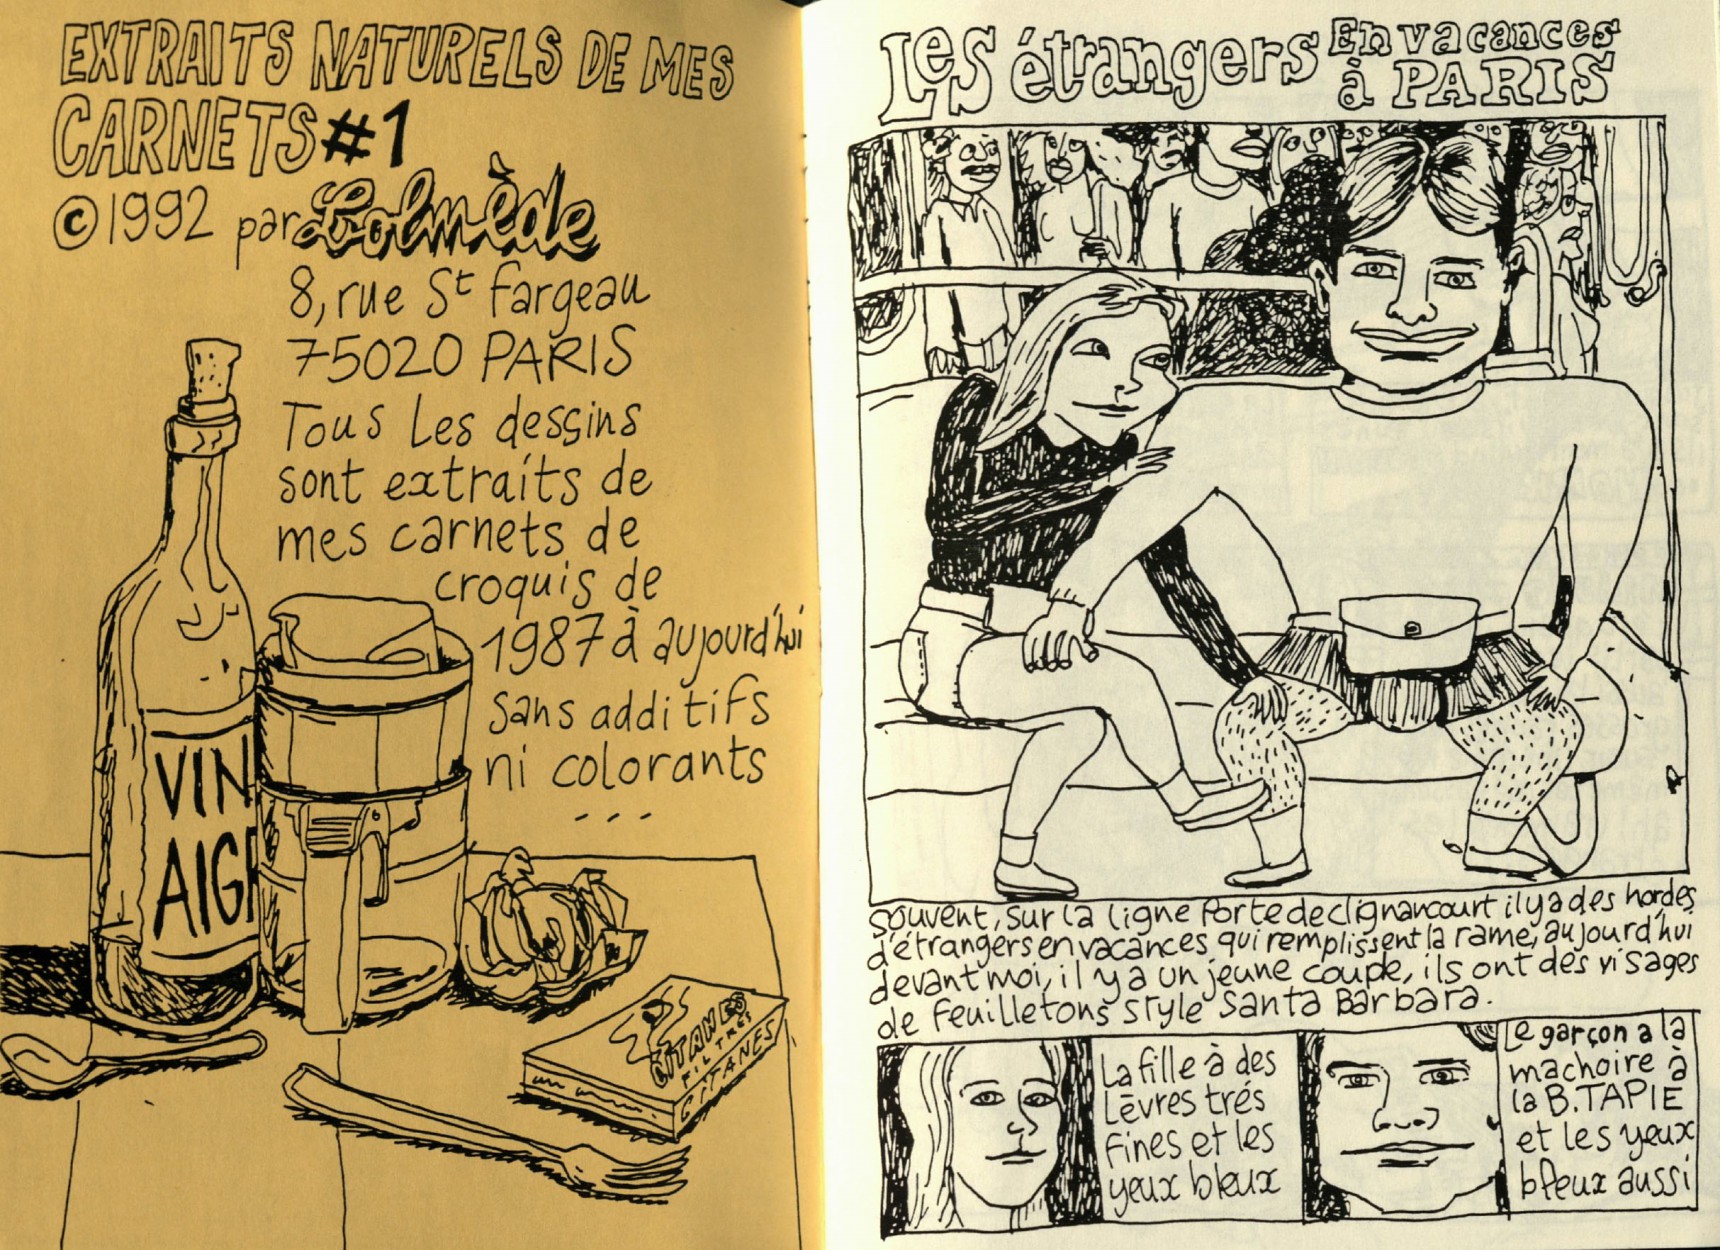 EXTRAITS NATURELS DE MES
CARNETS #1
©1992 par Lolmède
8, rue St fargeau
75020 PARIS
Tous Les dessins
sont extraits de
mes carnets de
croquis de
1987 à aujourd'hui
sans additifs
ni colorants
...
VIN
AIGR
GITANES
FILTRES
GITANES
Les étrangers En vacances
à PARIS
souvent, sur la ligne Porte de clignancourt il y a des hordes
d'étrangers en vacances qui remplissent la rame, aujourd'hui
devant moi, il y a un jeune couple, ils ont des visages
de feuilletons style Santa Barbara.
La fille à des
Lèvres trés
fines et les
yeux bleux
Le garçon a la
machoire à
la B.TAPIE
et les yeux
bleux aussi